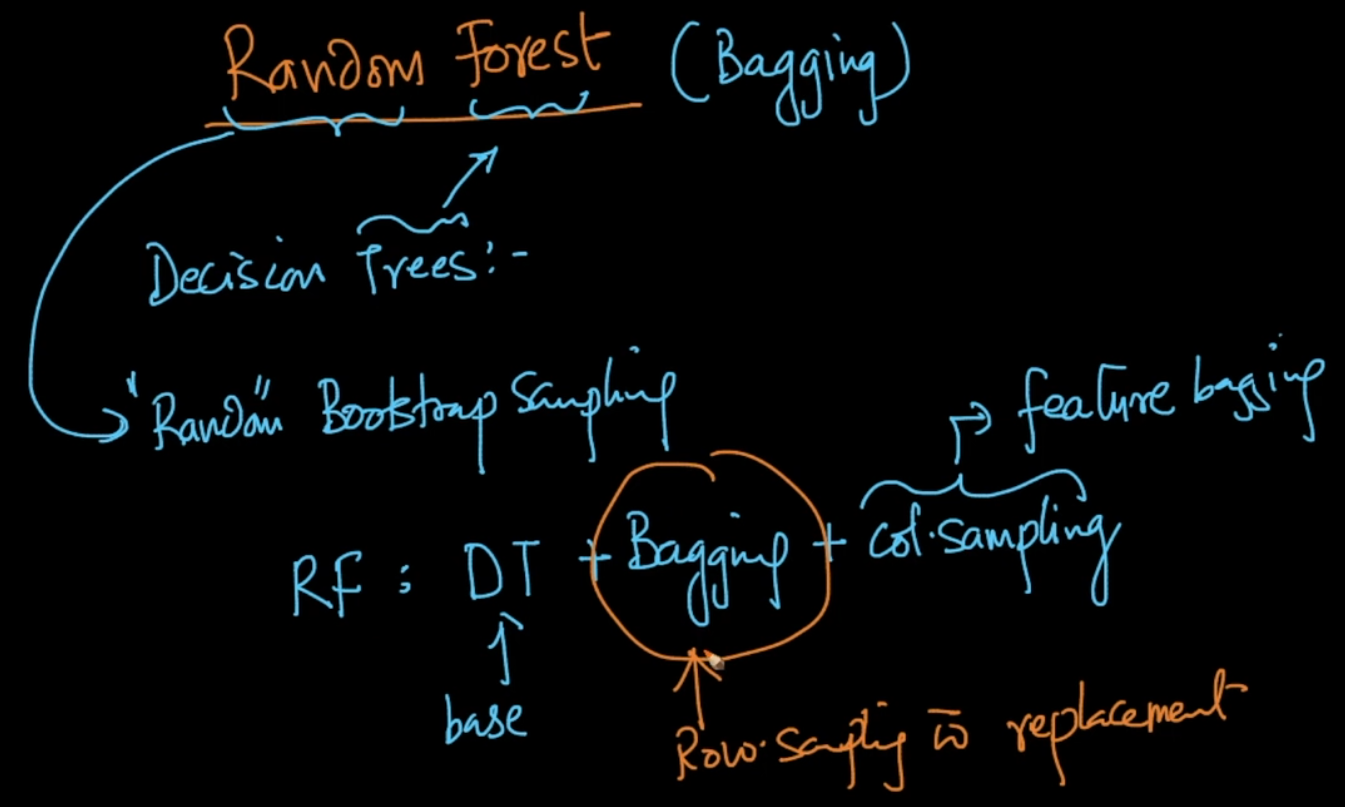 Random Forest (Bagging)
Decision Trees:-
"Random" Bootstrap Sampling
feature bagging
RF : DT + Bagging + col.sampling
base
Row.Sampling w̄ replacement